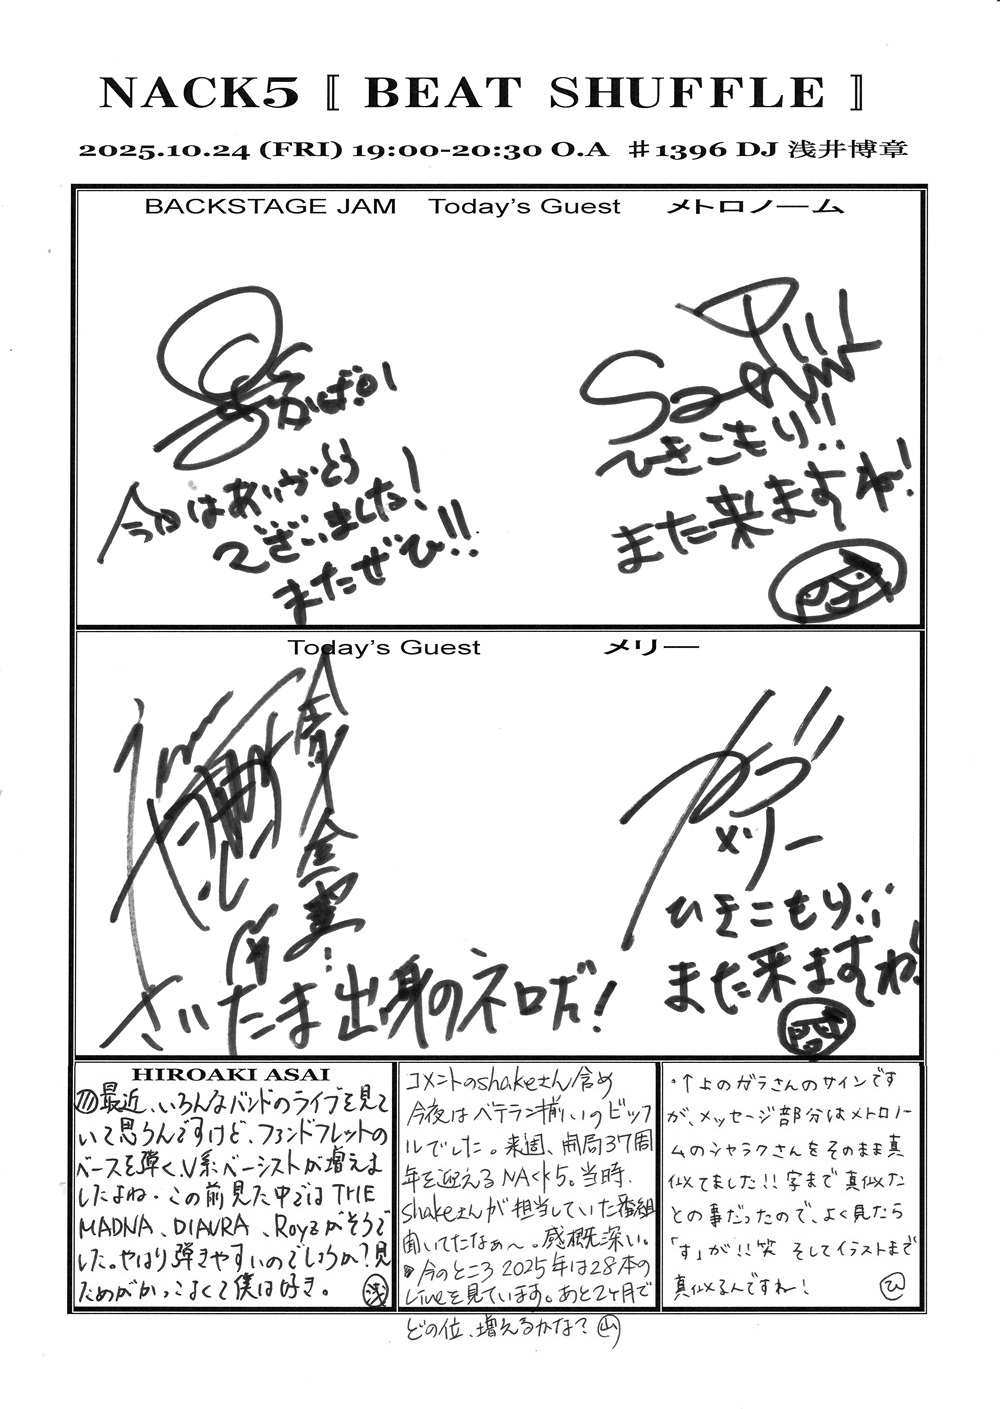 NACK5 〚 BEAT SHUFFLE 〛
2025.10.24 (FRI) 19:00-20:30 O.A ♯1396 DJ 浅井博章
BACKSTAGE JAM Today's Guest メトロノーム
今日はありがとう
ございました!
またぜひ!!
ひきこもり!!
また来ますね!
Today's Guest メリー
さいたま出身のネロだ!
ガラ
メリー
ひきこもり!!
また来ますね!
HIROAKI ASAI
最近、いろんなバンドのライブを見て
いて思うんですけど、ファンドフレットの
ベースを弾く、V系ベーシストが増えま
したよね。この前見た中では THE
MADNA、DIAURA、Royzがそうで
した。やはり弾きやすいのでしょうか?見
ためがかっこよくて僕は好き。 浅
コメントのshakeさん含め
今夜はベテラン揃いのビッフ
ルでした。来週、開局37周
年を迎えるNACK5。当時、
shakeさんが担当していた番組
聞いてたなぁ〜。感慨深い。
今のところ2025年は28本の
Liveを見ています。あと2ヶ月で
どの位、増えるかな? 山
・↑上のガラさんのサインです
が、メッセージ部分はメトロノー
ムのシャラクさんをそのまま真
似てました!!字まで真似た
との事だったので、よく見たら
「す」が!!笑 そしてイラストまで
真似るんですね! ひ